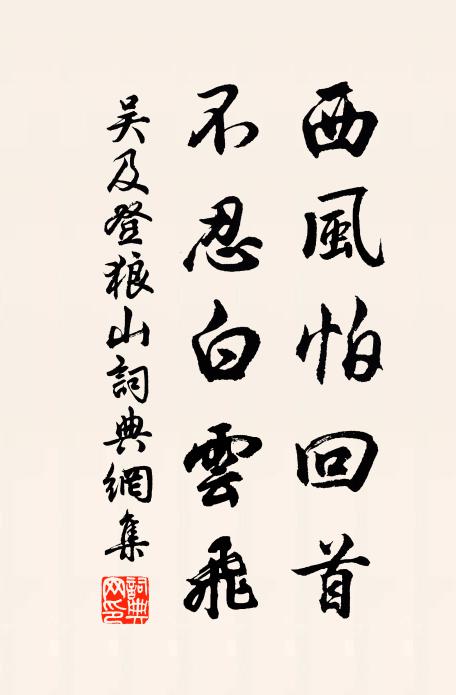 西風怕回首
不忍白雲飛
吴及登狼山詞典網集
詞典網印